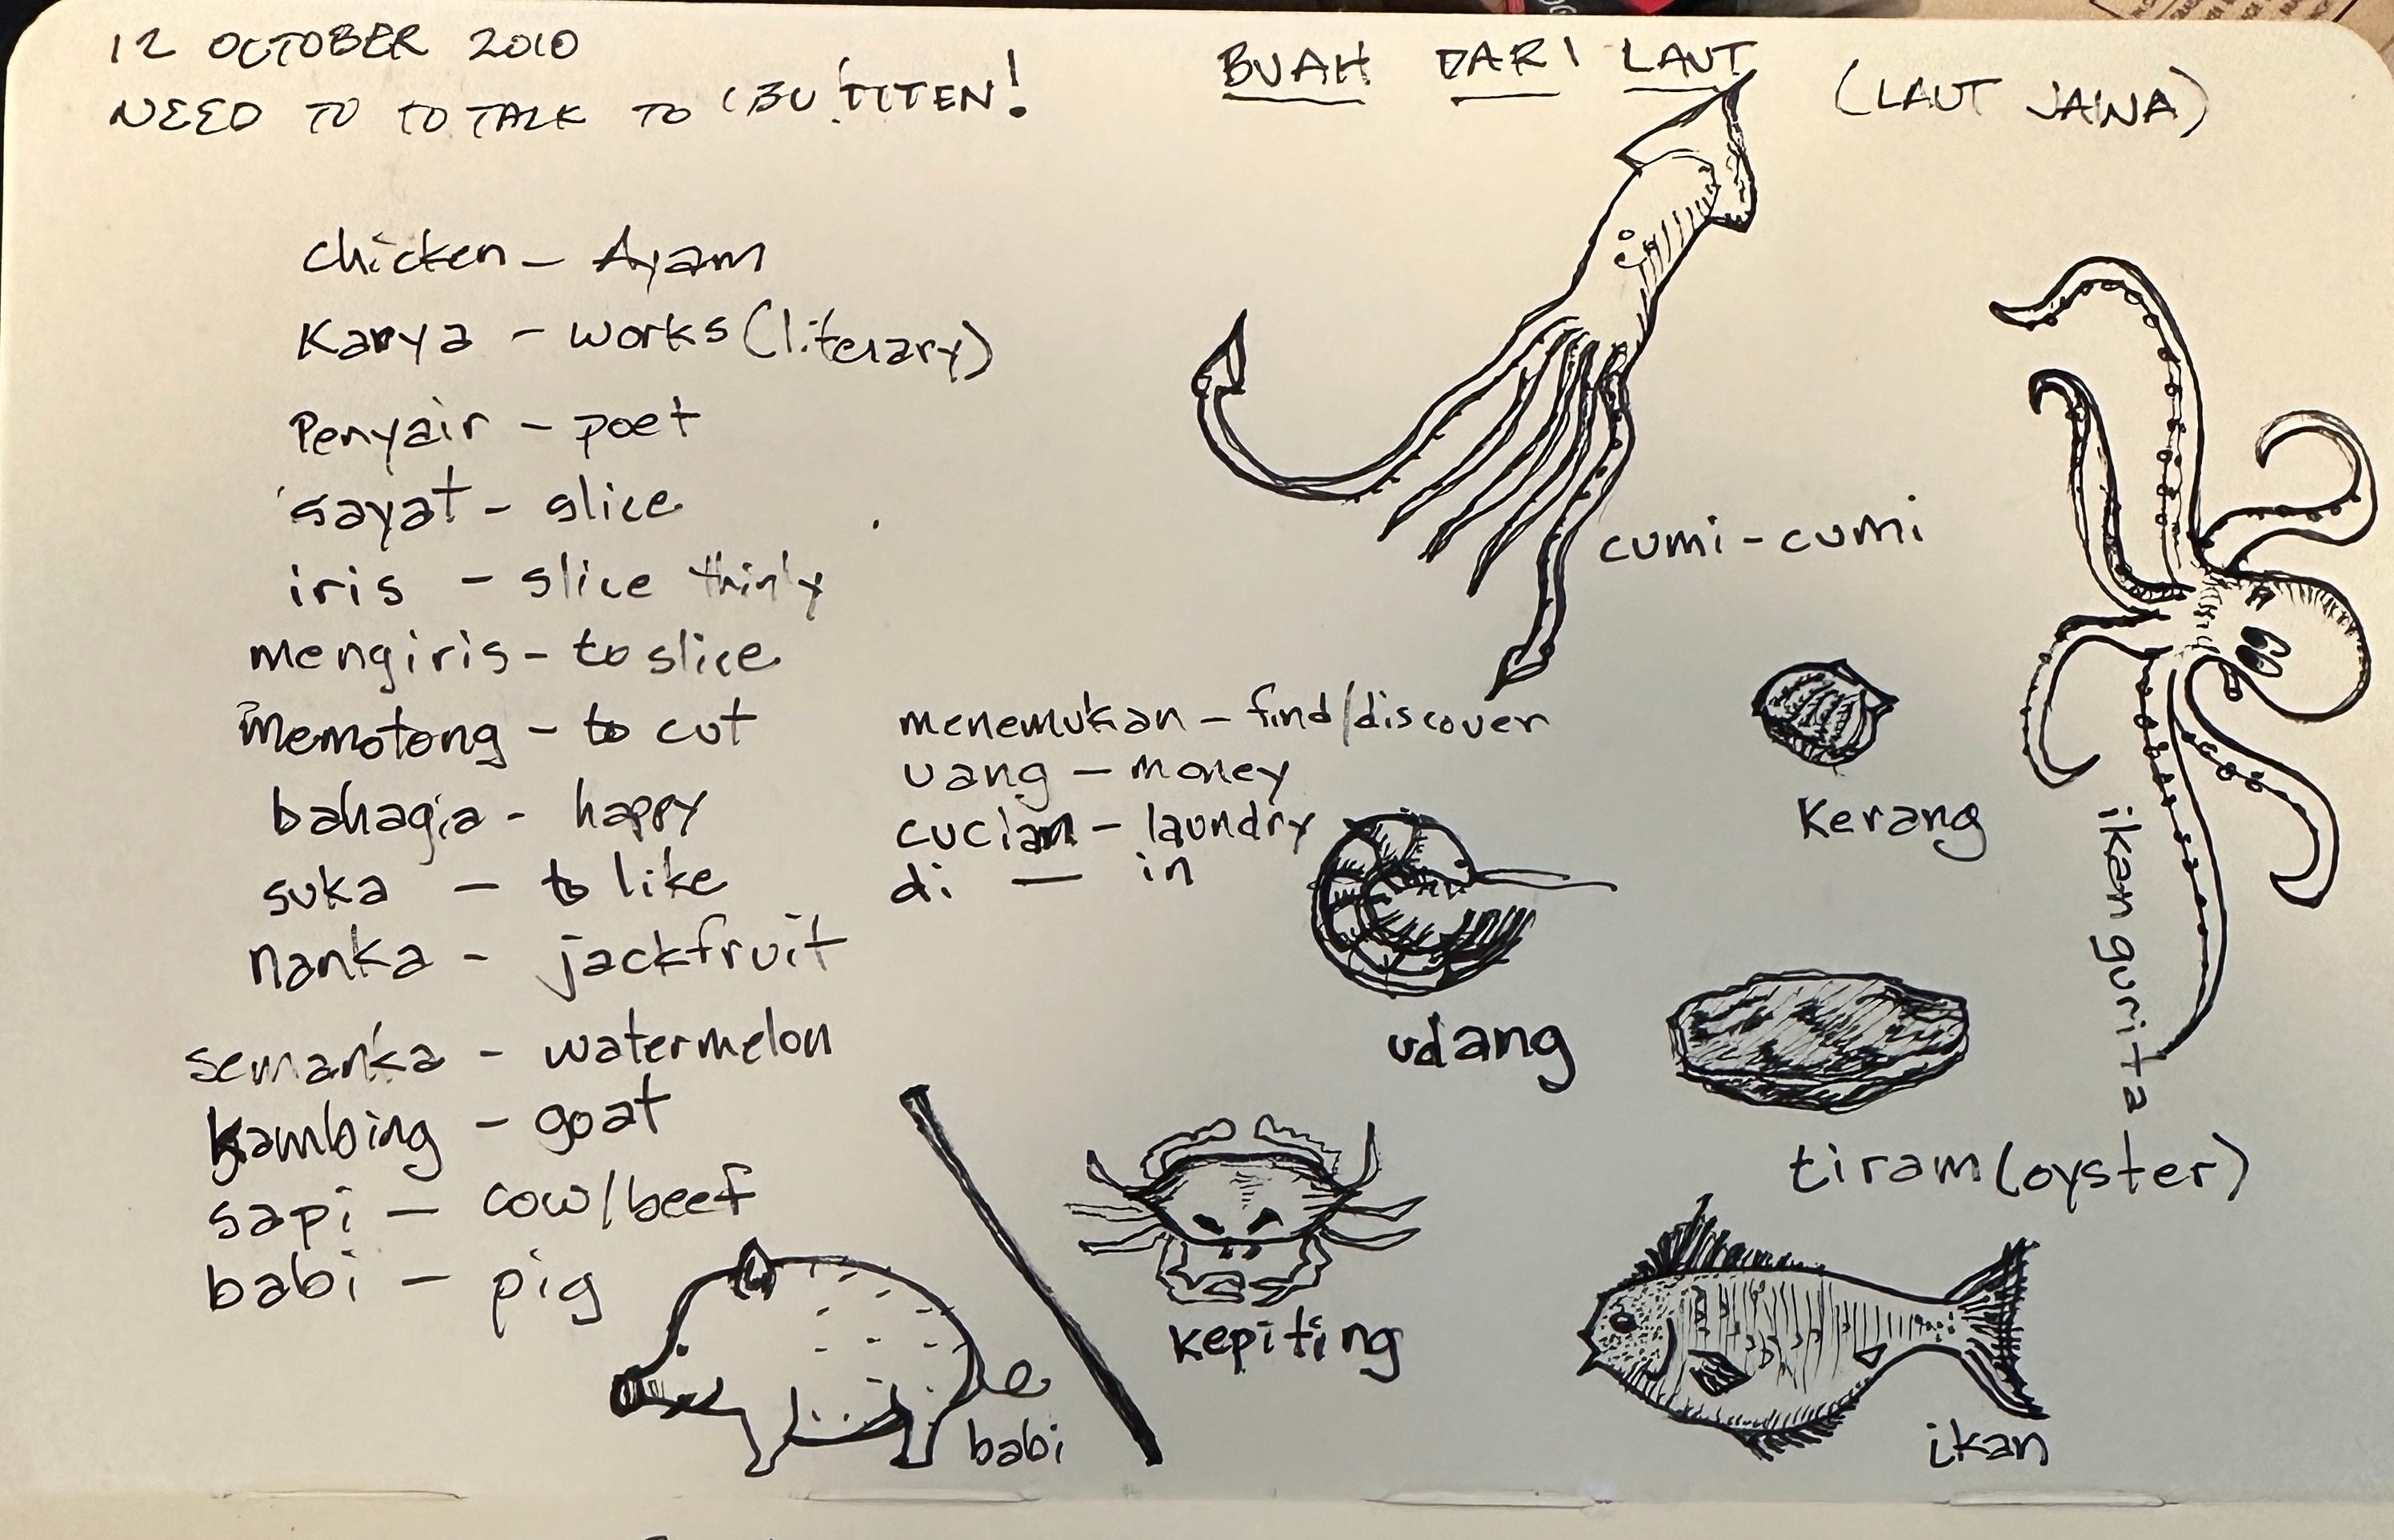 12 OCTOBER 2010
NEED TO TO TALK TO IBU TITEN!
BUAH DARI LAUT (LAUT JAWA)
chicken - Ayam
Karya - works (literary)
Penyair - poet
sayat - slice
iris - slice thinly
mengiris - to slice
memotong - to cut
bahagia - happy
suka - to like
nanka - jackfruit
semanka - watermelon
kambing - goat
sapi - cow/beef
babi - pig
menemukan - find/discover
uang - money
cucian - laundry
di - in
cumi-cumi
kerang
ikan gurita
udang
tiram (oyster)
kepiting
ikan
babi